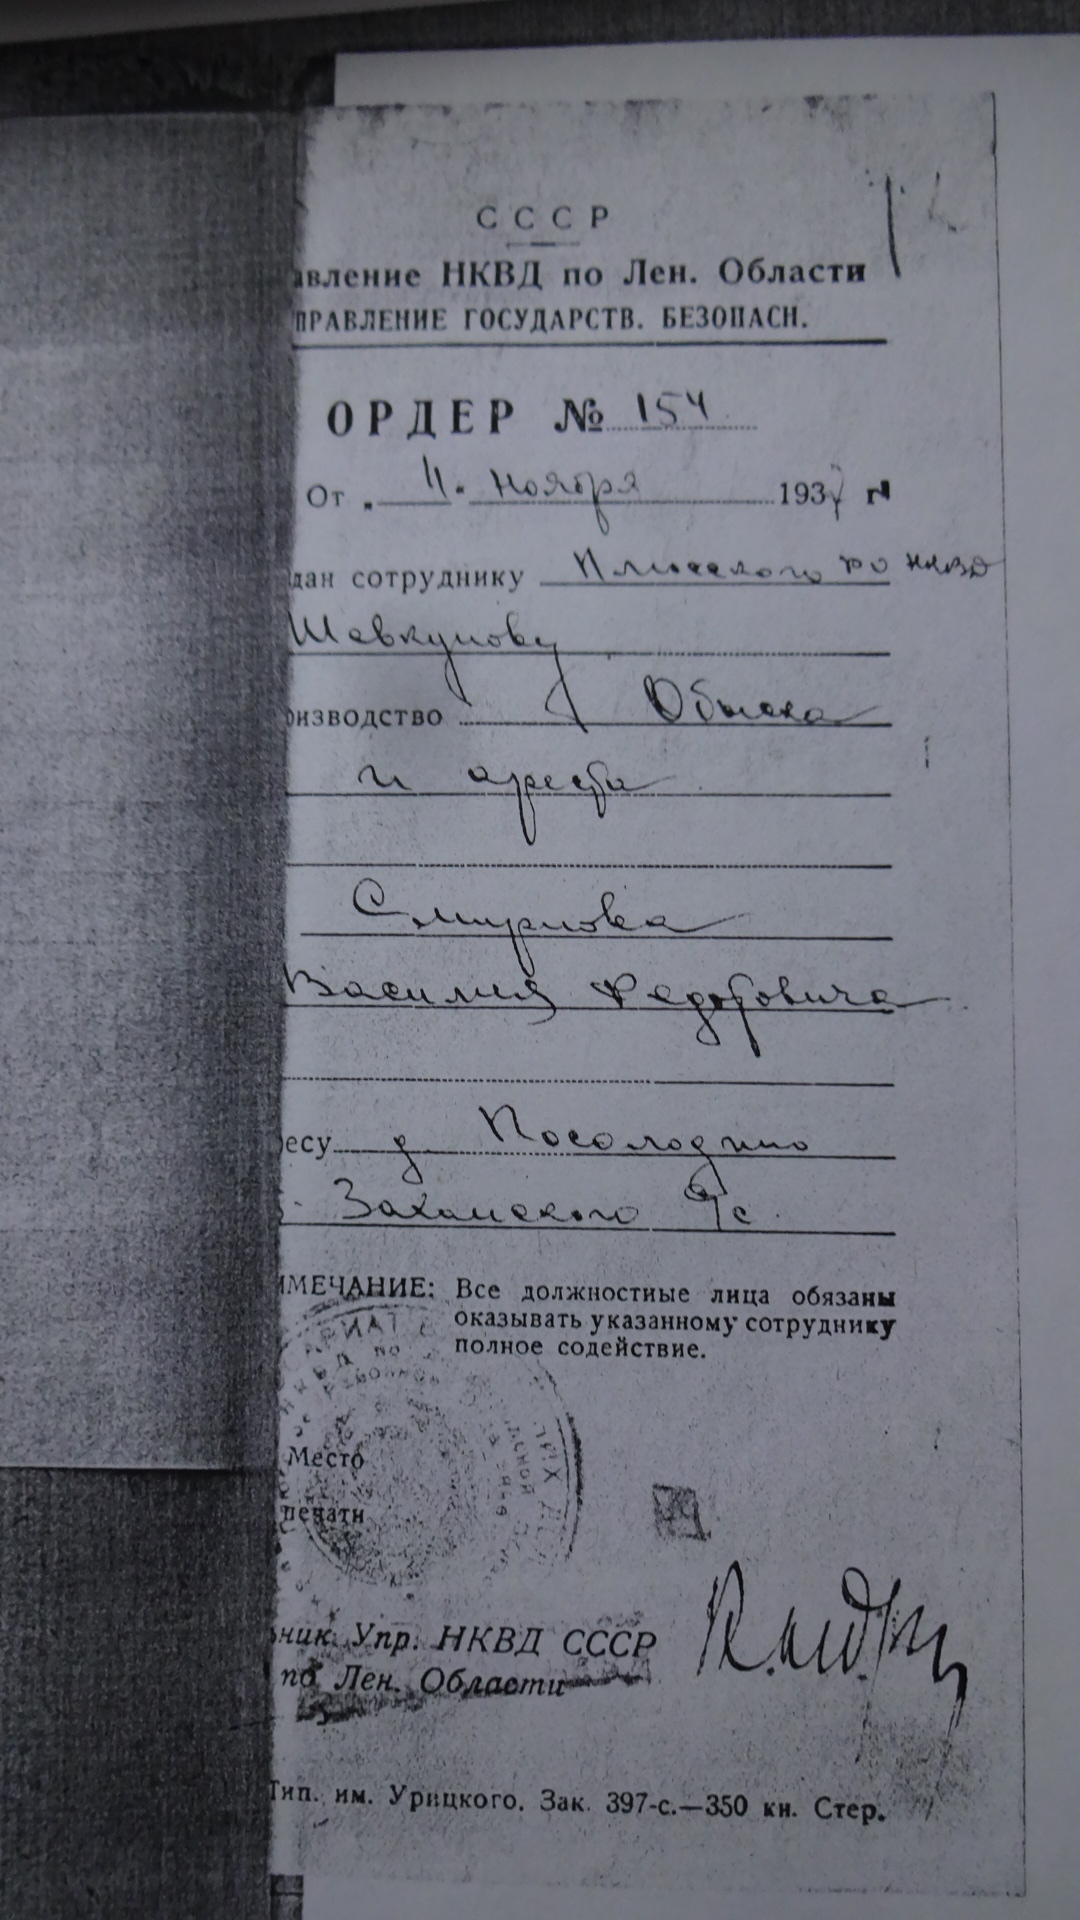 СССР
авление НКВД по Лен. Области
ПРАВЛЕНИЕ ГОСУДАРСТВ. БЕЗОПАСН.
ОРДЕР № 154
От „ 11. ноября 1937 г
дан сотруднику Плюсского РО НКВД
Шевкунову
оизводство Обыска
и ареста
Смирнова
Василия Федоровича
есу д Посолодино
Заханского с/с.
ИМЕЧАНИЕ: Все должностные лица обязаны
оказывать указанному сотруднику
полное содействие.
Место
печати
ьник Упр. НКВД СССР
по Лен. Области
Тип. им. Урицкого. Зак. 397-с.—350 кн. Стер.